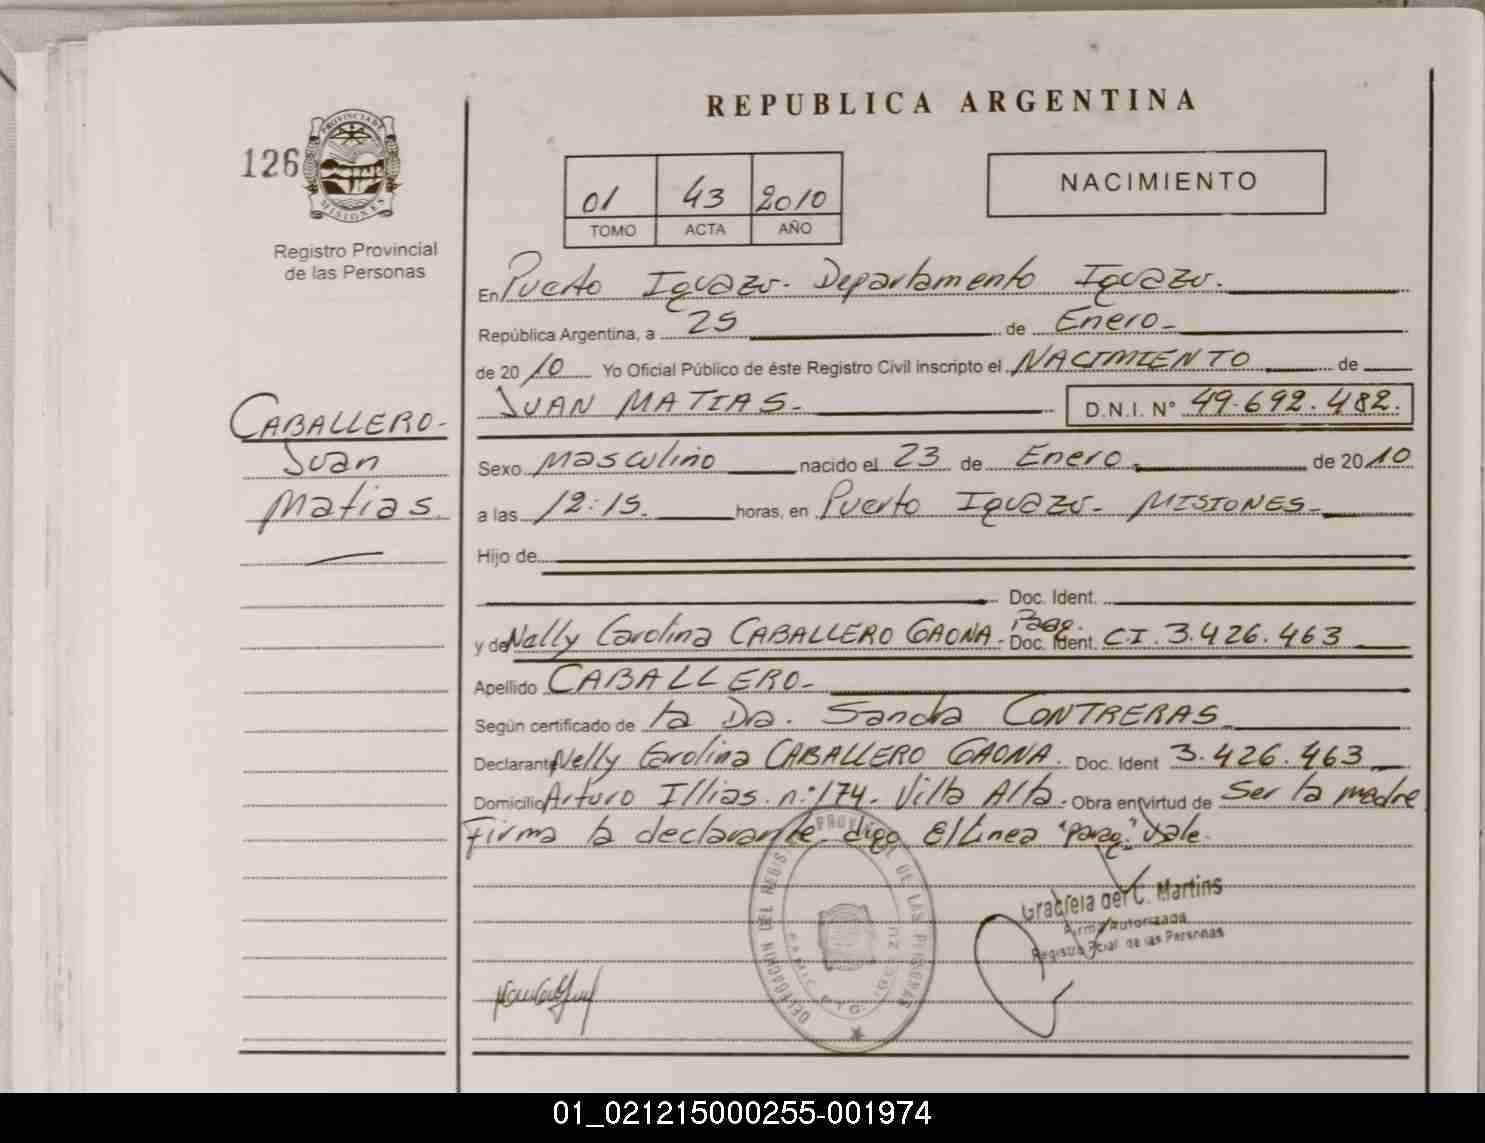 REPUBLICA ARGENTINA
126
PROVINCIA DE
MISIONES
Registro Provincial
de las Personas
01 43 2010
TOMO ACTA AÑO
NACIMIENTO
En Puerto Iguazu. Departamento Iguazu.
República Argentina, a 25 de Enero
de 2010 Yo Oficial Público de éste Registro Civil inscripto el NACIMIENTO de
JUAN MATIAS D.N.I. N° 49.692.482.
CABALLERO
Juan
Matias
Sexo Masculino nacido el 23 de Enero de 2010
a las 12:15. horas, en Puerto Iguazu MISIONES
Hijo de
Doc. Ident.
Parag.
y de Nelly Carolina CABALLERO GAONA Doc. Ident. C.I. 3.426.463
Apellido CABALLERO
Según certificado de la Dra. Sandra CONTRERAS
Declarante Nelly Carolina CABALLERO GAONA. Doc. Ident 3.426.463
Domicilio Arturo Illias n° 174. Villa Alta. Obra en virtud de Ser la madre
Firma la declarante digo E/Linea "Parag." Vale.
DELEGACION DEL REGIS PROVINCIAL DE LAS PERSONAS
Graciela del C. Martins
Firma Autorizada
Registro Pcial. de las Personas
01_021215000255-001974